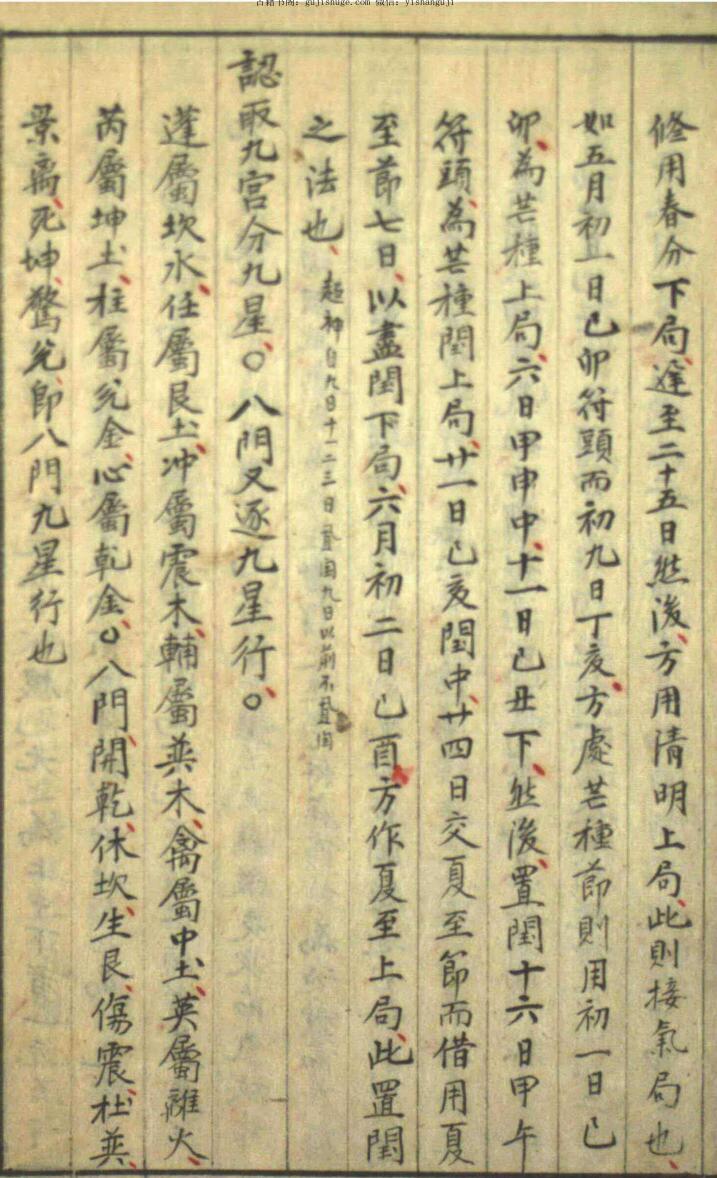 古籍书阁：gujishuge.com 微信：yishanguji
修用春分下局、遲至二十五日然後、方用清明上局、此則接氣局也、
如五月初一日己卯符頭而初九日丁亥、方處芒種節則用初一日己
卯、為芒種上局、六日甲申中、十一日己丑下、然後、置閏十六日甲午
符頭、為芒種閏上局、廿一日己亥閏中、廿四日交夏至節而借用夏
至節七日、以盡閏下局、六月初二日己酉方作夏至上局、此置閏
之法也、超神自九日十一二三日置閏九日以前不置閏
認取九宮分九星。八門又逐九星行。
蓬屬坎水、任屬艮土、冲屬震木、輔屬巽木、禽屬中土、英屬離火、
芮屬坤土、柱屬兌金、心屬乾金。八門、開乾、休坎、生艮、傷震、杜巽、
景离、死坤、驚兌、即八門九星行也